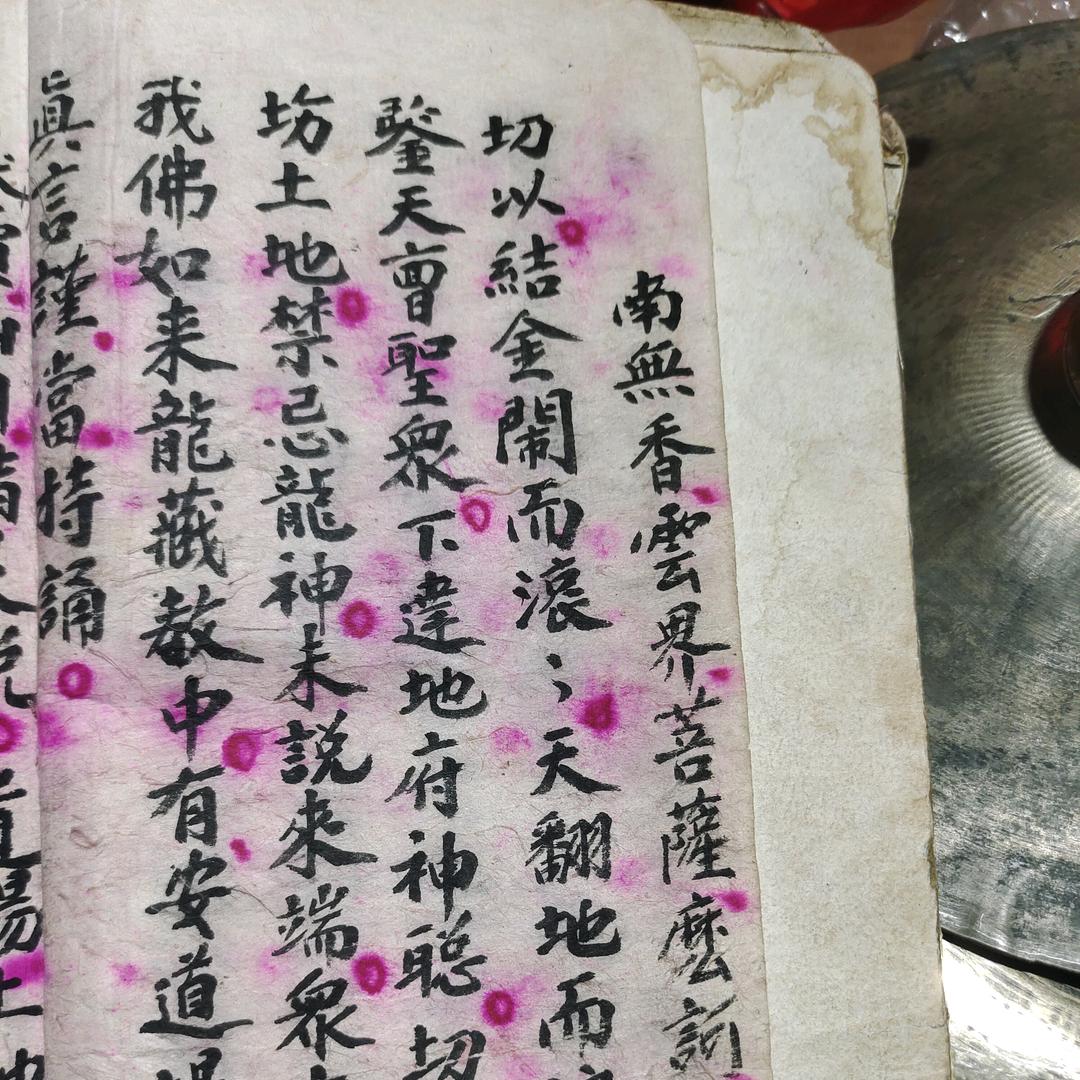 南無香雲界菩薩麼訶
切以結金鬧而滾〻天翻地而
鑒天曹聖衆下達地府神聡切
坊土地禁忌龍神未説來端衆
我佛如来龍藏教中有安道場
眞言謹當持誦